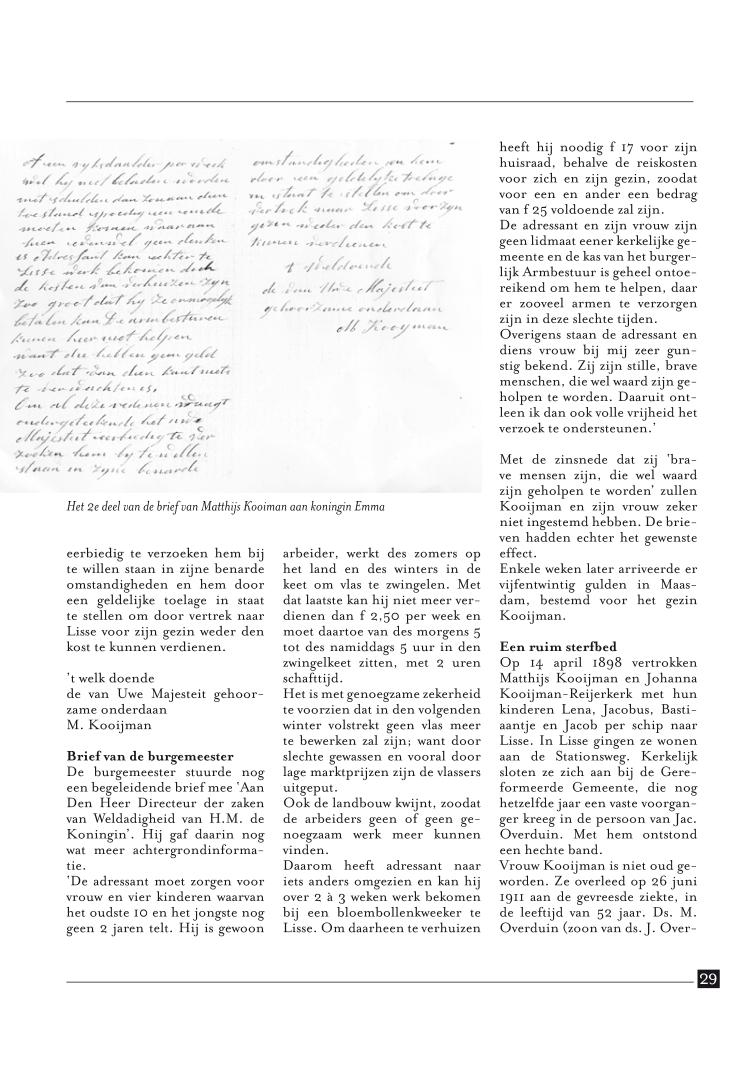 of een rijksdaalder per week
wil hij niet beladen worden
met schulden dan zou aan dien
toestand spoedig een einde
moeten komen waaraan
hier evenwel geen denken
is Adressant kan echter te
Lisse werk bekomen doch
de kosten van verhuizen zijn
zoo groot dat hij ze onmogelijk
betalen kan De armbesturen
kunnen hier niet helpen
want die hebben geen geld
zoo dat van dien kant niets
te verwachten is,
Om al deze redenen waagt
ondergeteekende het uwe
Majesteit eerbiedig te ver
zoeken hem bij te willen
staan in zijne benarde
omstandigheden en hem
door een geldelijke toelage
in staat te stellen om door
vertrek naar Lisse voor zijn
gezin weder den kost te
kunnen verdienen
't welk doende
de van Uwe Majesteit
gehoorzame onderdaan
M Kooyman
Het 2e deel van de brief van Matthijs Kooiman aan koningin Emma
eerbiedig te verzoeken hem bij
te willen staan in zijne benarde
omstandigheden en hem door
een geldelijke toelage in staat
te stellen om door vertrek naar
Lisse voor zijn gezin weder den
kost te kunnen verdienen.
't welk doende
de van Uwe Majesteit gehoor-
zame onderdaan
M. Kooijman
Brief van de burgemeester
De burgemeester stuurde nog
een begeleidende brief mee 'Aan
Den Heer Directeur der zaken
van Weldadigheid van H.M. de
Koningin'. Hij gaf daarin nog
wat meer achtergrondinforma-
tie.
'De adressant moet zorgen voor
vrouw en vier kinderen waarvan
het oudste 10 en het jongste nog
geen 2 jaren telt. Hij is gewoon
arbeider, werkt des zomers op
het land en des winters in de
keet om vlas te zwingelen. Met
dat laatste kan hij niet meer ver-
dienen dan f 2,50 per week en
moet daartoe van des morgens 5
tot des namiddags 5 uur in den
zwingelkeet zitten, met 2 uren
schafttijd.
Het is met genoegzame zekerheid
te voorzien dat in den volgenden
winter volstrekt geen vlas meer
te bewerken zal zijn; want door
slechte gewassen en vooral door
lage marktprijzen zijn de vlassers
uitgeput.
Ook de landbouw kwijnt, zoodat
de arbeiders geen of geen ge-
noegzaam werk meer kunnen
vinden.
Daarom heeft adressant naar
iets anders omgezien en kan hij
over 2 à 3 weken werk bekomen
bij een bloembollenkweeker te
Lisse. Om daarheen te verhuizen
heeft hij noodig f 17 voor zijn
huisraad, behalve de reiskosten
voor zich en zijn gezin, zoodat
voor een en ander een bedrag
van f 25 voldoende zal zijn.
De adressant en zijn vrouw zijn
geen lidmaat eener kerkelijke ge-
meente en de kas van het burger-
lijk Armbestuur is geheel ontoe-
reikend om hem te helpen, daar
er zooveel armen te verzorgen
zijn in deze slechte tijden.
Overigens staan de adressant en
diens vrouw bij mij zeer gun-
stig bekend. Zij zijn stille, brave
menschen, die wel waard zijn ge-
holpen te worden. Daaruit ont-
leen ik dan ook volle vrijheid het
verzoek te ondersteunen.'
Met de zinsnede dat zij 'bra-
ve mensen zijn, die wel waard
zijn geholpen te worden' zullen
Kooijman en zijn vrouw zeker
niet ingestemd hebben. De brie-
ven hadden echter het gewenste
effect.
Enkele weken later arriveerde er
vijfentwintig gulden in Maas-
dam, bestemd voor het gezin
Kooijman.
Een ruim sterfbed
Op 14 april 1898 vertrokken
Matthijs Kooijman en Johanna
Kooijman-Reijerkerk met hun
kinderen Lena, Jacobus, Basti-
aantje en Jacob per schip naar
Lisse. In Lisse gingen ze wonen
aan de Stationsweg. Kerkelijk
sloten ze zich aan bij de Gere-
formeerde Gemeente, die nog
hetzelfde jaar een vaste voorgan-
ger kreeg in de persoon van Jac.
Overduin. Met hem ontstond
een hechte band.
Vrouw Kooijman is niet oud ge-
worden. Ze overleed op 26 juni
1911 aan de gevreesde ziekte, in
de leeftijd van 52 jaar. Ds. M.
Overduin (zoon van ds. J. Over-
29